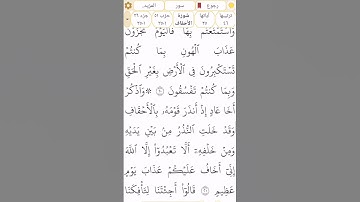 رجوع سور المزيد
ترتيبها آياتها سورة حزب ٥١ جزء ٢٦
٤٦ ٣٥ الأحقاف
وَٱسۡتَمۡتَعۡتُم بِهَا فَٱلۡيَوۡمَ تُجۡزَوۡنَ
عَذَابَ ٱلۡهُونِ بِمَا كُنتُمۡ
تَسۡتَكۡبِرُونَ فِي ٱلۡأَرۡضِ بِغَيۡرِ ٱلۡحَقِّ
وَبِمَا كُنتُمۡ تَفۡسُقُونَ ۞ وَٱذۡكُرۡ
أَخَا عَادٍ إِذۡ أَنذَرَ قَوۡمَهُۥ بِٱلۡأَحۡقَافِ
وَقَدۡ خَلَتِ ٱلنُّذُرُ مِنۢ بَيۡنِ يَدَيۡهِ
وَمِنۡ خَلۡفِهِۦٓ أَلَّا تَعۡبُدُوٓاْ إِلَّا ٱللَّهَ
إِنِّيٓ أَخَافُ عَلَيۡكُمۡ عَذَابَ يَوۡمٍ
عَظِيمٖ قَالُوٓاْ أَجِئۡتَنَا لِتَأۡفِكَنَا